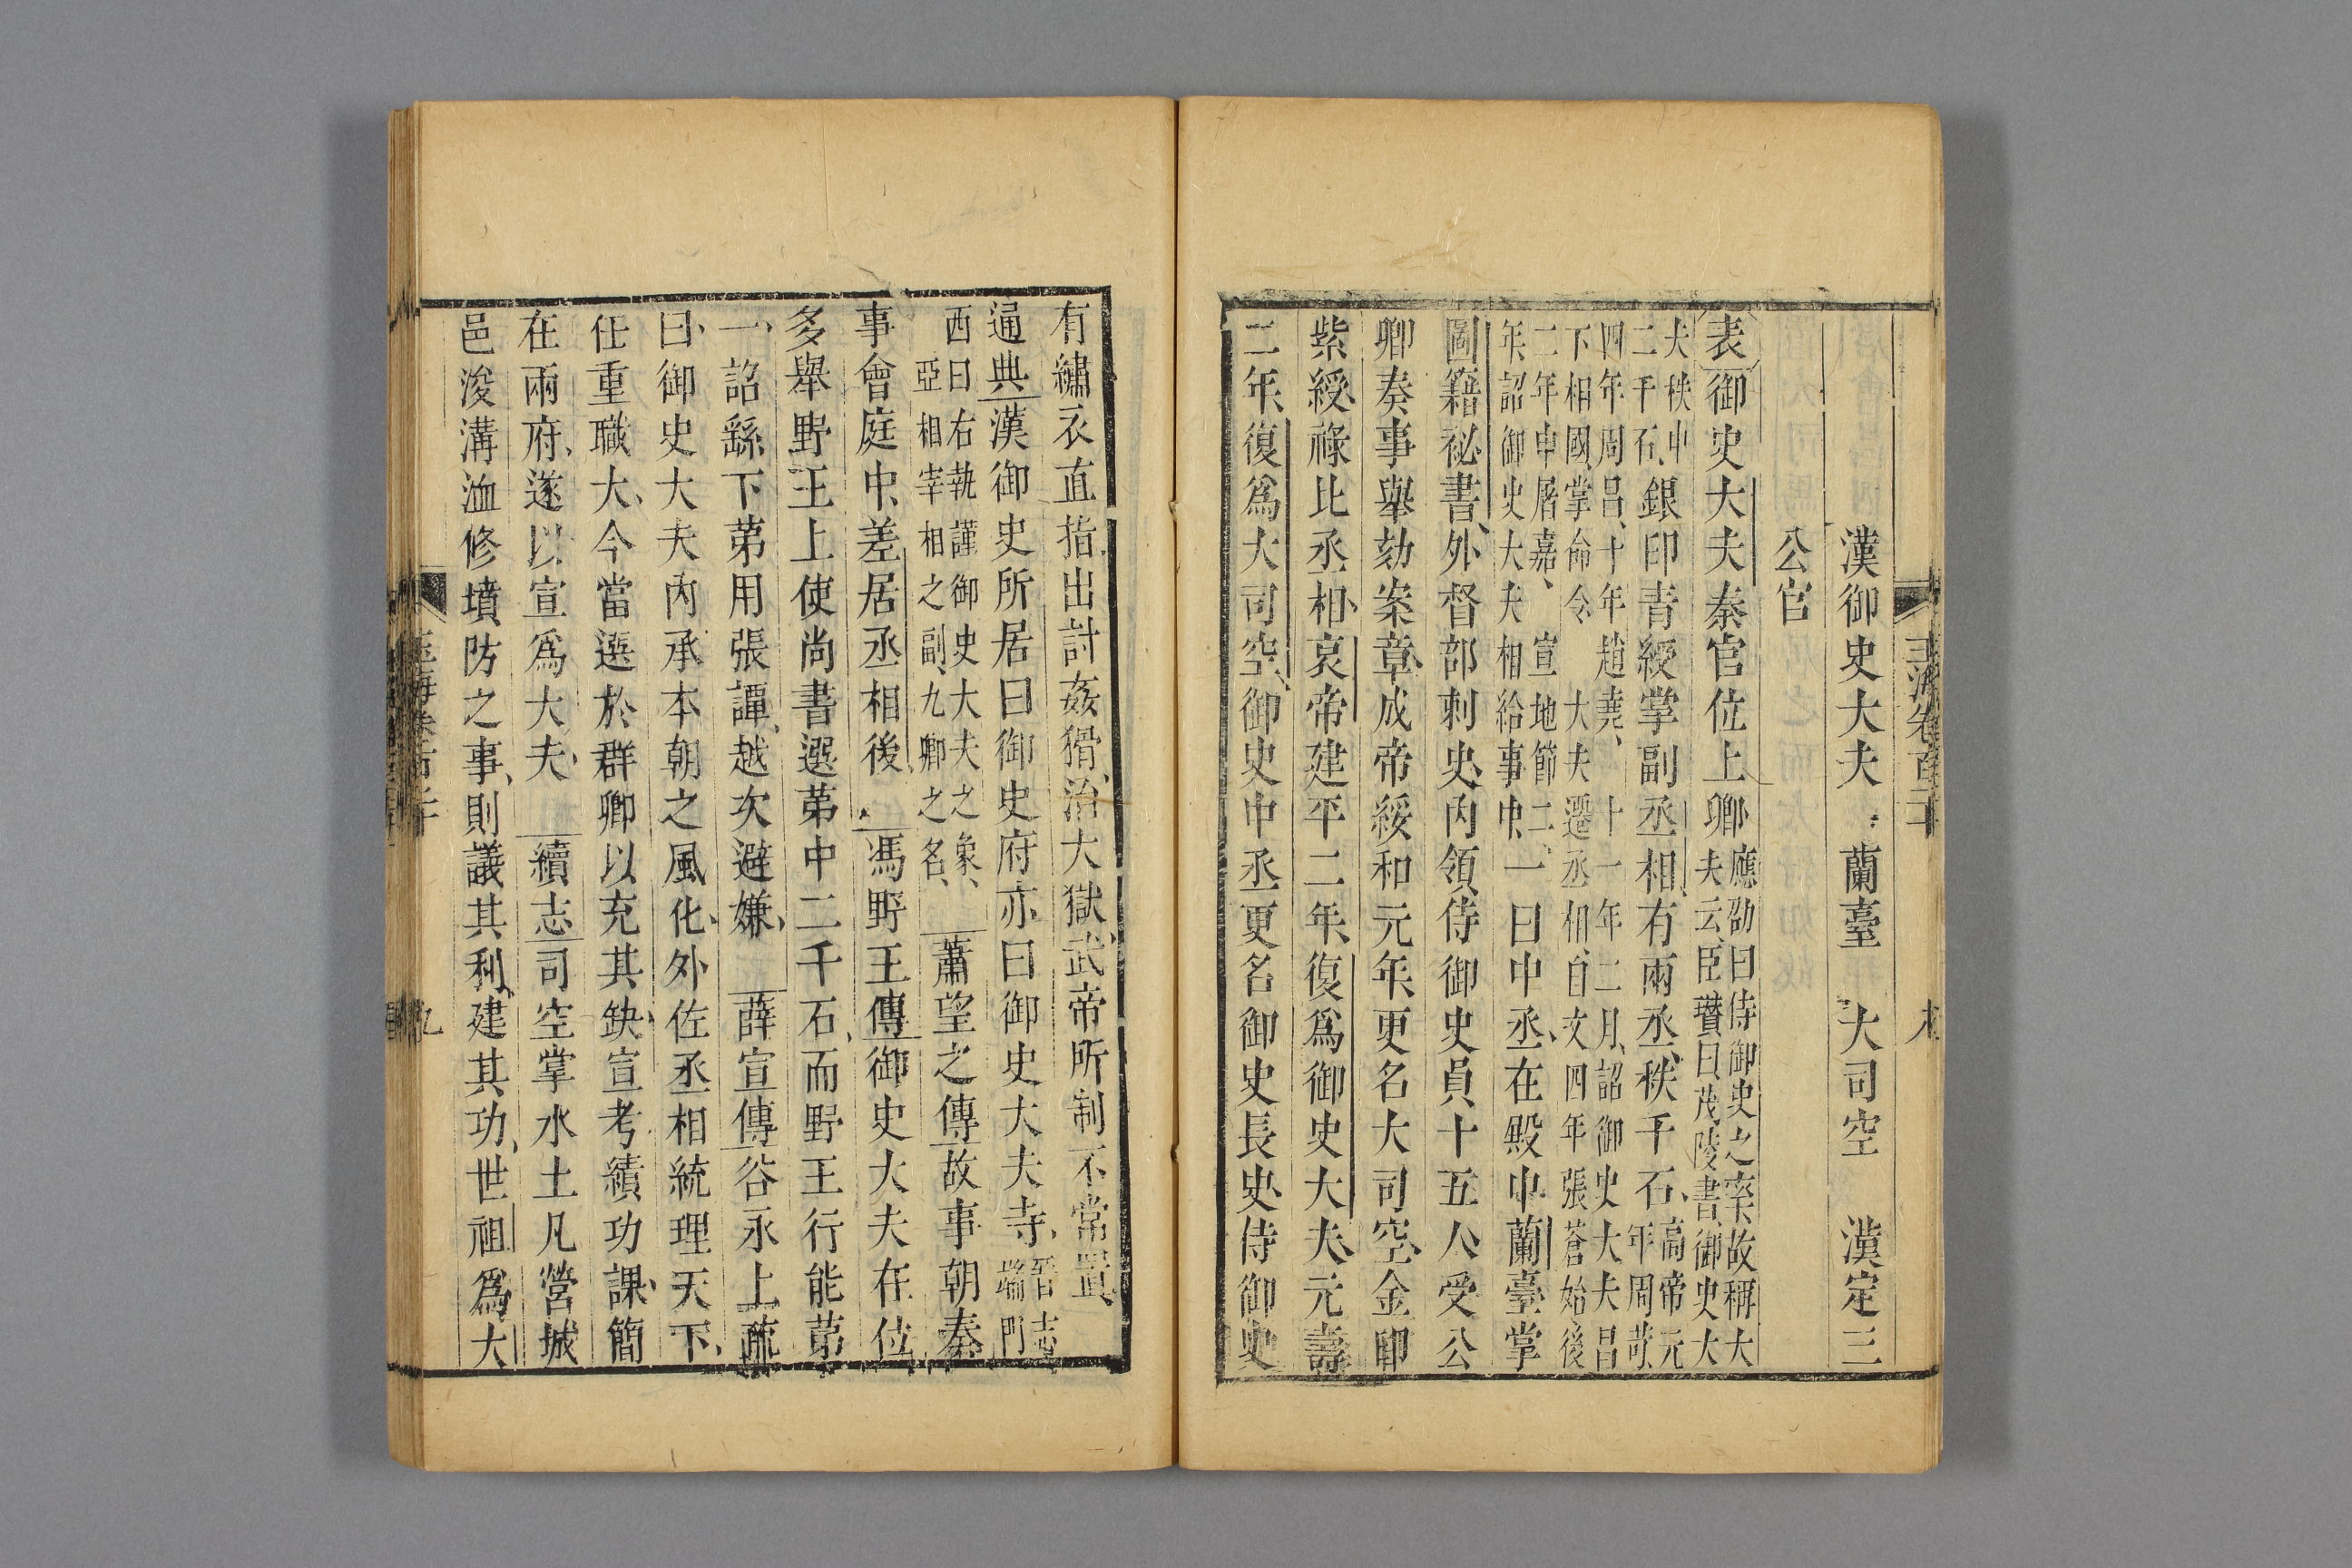 玉海卷百二十
漢御史大夫　蘭臺　大司空　漢定三
公官
表御史大夫秦官位上卿應劭曰侍御史之率故稱大夫云臣瓚曰茂陵書御史大
夫秩中二千石銀印青綬掌副丞相有兩丞秩千石高帝元年周苛
四年周昌、十年趙堯、十一年二月詔御史大夫昌下相國掌命令　大夫遷丞相自文四年張蒼始後
二年申屠嘉、宣地節二、年詔御史大夫相給事中、一曰中丞、在殿中蘭臺掌
圖籍祕書、外督部刺史、內領侍御史員十五人、受公
卿奏事舉劾案章、成帝綏和元年、更名大司空、金印
紫綬、祿比丞相、哀帝建平二年、復爲御史大夫、元壽
二年、復爲大司空、御史中丞更名御史長史、侍御史
有繡衣直指出討姦猾、治大獄、武帝所制不常置、
通典漢御史所居曰御史府亦曰御史大夫寺、晉志端門
西曰右執謹御史大夫之象、亞相宰相之副、九卿之名、蕭望之傳故事朝奏
事會庭中、差居丞相後、馮野王傳御史大夫在位
多舉野王上使尚書選第中二千石、而野王行能第
一、詔繇下第用張譚、越次避嫌、薛宣傳谷永上疏
曰、御史大夫內承本朝之風化、外佐丞相統理天下、
任重職大、今當選於群卿以充其缺、宣考績功課、簡
在兩府、遂以宣爲大夫、續志司空掌水土凡營城
邑浚溝洫修墳防之事、則議其利、建其功、世祖爲大
九